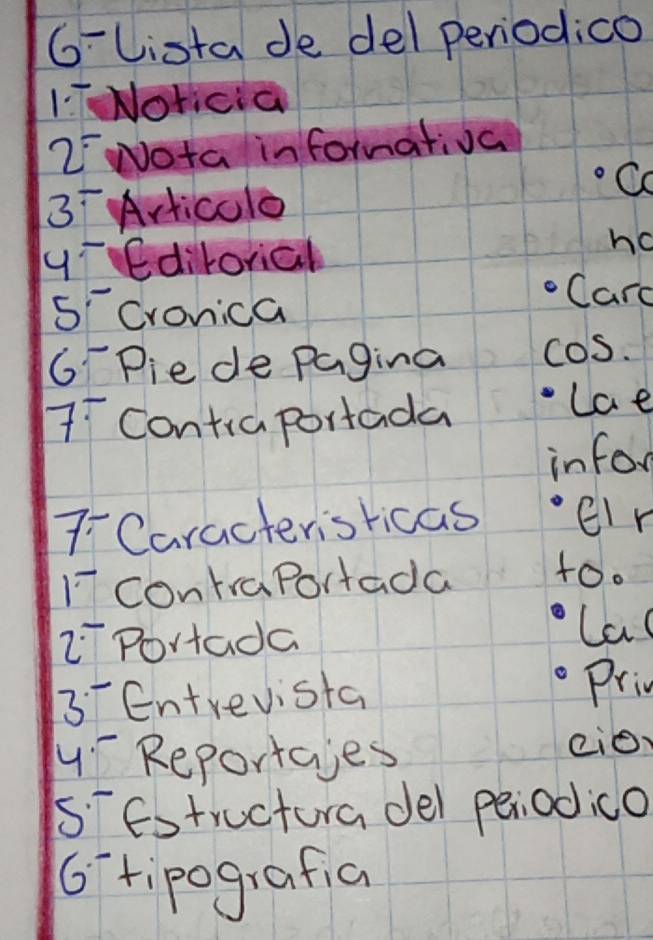 6- Lista de del periodico
1.- Noticia
2- Nota informativa
3- Articulo
4- Editorial
5.- Cronica
6- Pie de Pagina
7.- Contraportada
7.- Caracteristicas
1- ContraPortada
2- Portada
3.- Entrevista
4.- Reportajes
5.- Estructura del periodico
6- tipografia
• Co
no
• Carc
cos.
• La e
infor
• El r
to.
• La
• Prin
cion